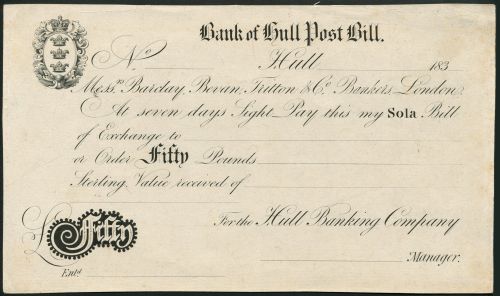 Bank of Hull Post Bill.
No. Hull 183
Messrs. Barclay, Bevan, Tritton & Co. Bankers, London.
At seven days Sight Pay this my Sola Bill
of Exchange to
or Order Fifty Pounds
Sterling Value received of
For the Hull Banking Company
£ Fifty
Entd. Manager.